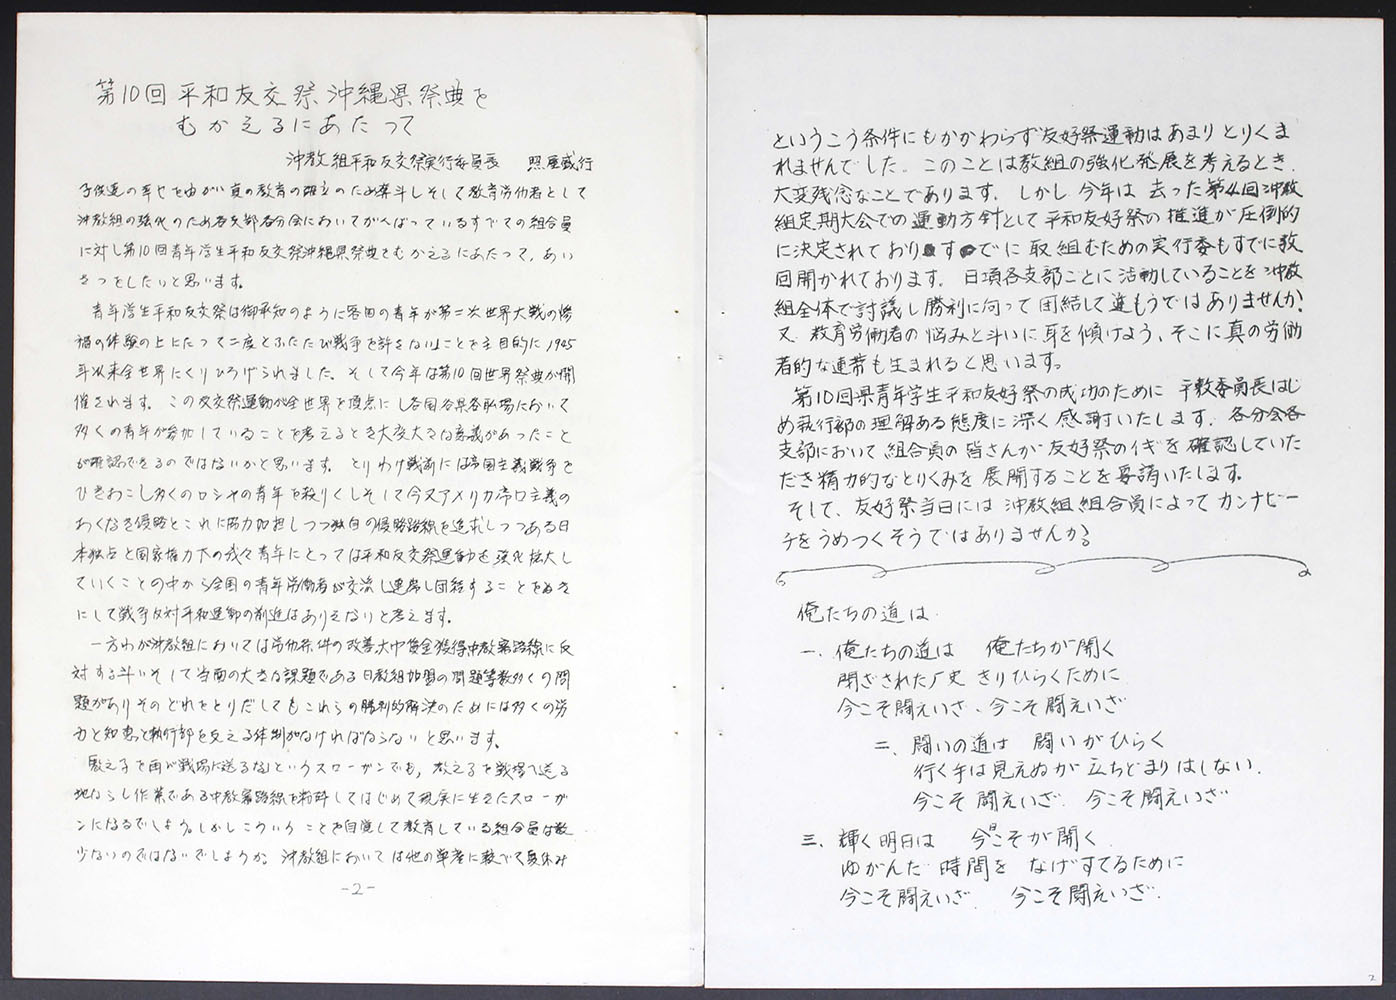 第10回 平和友交祭 沖縄県祭典を
むかえるにあたって
沖教組平和友交祭実行委員長 照屋盛行
子供達の幸せをゆがい真の教育の確立のため奔斗しそして教育労働者として
沖教組の強化のため各支部各分会においてがんばっているすべての組合員
に対し第10回青年学生平和友交祭沖縄県祭典をむかえるにあたって、あい
さつをしたいと思います。
青年学生平和友交祭は御承知のように各国の青年が第二次世界大戦の惨
禍の体験の上にたって二度とふたたび戦争を許さないことを主目的に1945
年以来全世界にくりひろげられました。そして今年は第10回世界祭典が開
催されます。この友交祭運動が全世界を頂点にし各国各県各職場において
多くの青年が参加していることを考えるとき大変大きな意義があったこと
が確認できるのではないかと思います。とりわけ戦前には帝国主義戦争を
ひきおこし多くのロシヤの青年を殺りくしそして今又アメリカ帝口主義の
あくなき侵略とこれに協力加担しつつ独自の侵略路線を追求しつつある日
本独占と国家権力下の我々青年にとっては平和友交祭運動を強化拡大し
ていくことの中から全国の青年労働者が交流し連帯し団結することをぬき
にして戦争反対平和運動の前進はありえないと考えます。
一方わが沖教組においては労働条件の改善大巾賃金獲得中教審路線に反
対する斗いそして当面の大きな課題である日教組加盟の問題等数多くの問
題がありそのどれをとりだしてもこれらの勝利的解決のためには多くの労
力と知恵と執行部を支える体制がなければならないと思います。
「教え子を再び戦場に送るな」というスローガンでも，教え子を戦場へ送る
地ならし作業である中教審路線を粉砕してはじめて現実に生きたスローガ
ンになるでしょう。しかしこういうことを自覚して教育している組合員は数
少ないのではないでしょうか。沖教組においては他の単産に較べて夏休み
-2-
というこう条件にもかかわらず友好祭運動はあまりとりくま
れませんでした。このことは教組の強化発展を考えるとき、
大変残念なことであります。しかし今年は去った第4回沖教
組定期大会での運動方針として平和友好祭の推進が圧倒的
に決定されておりすでに取組むための実行委もすでに数
回開かれております。日頃各支部ごとに活動していることを沖教
組全体で討議し勝利に向って団結して進もうではありませんか。
又、教育労働者の悩みと斗いに耳を傾けよう、そこに真の労働
者的な連帯も生まれると思います。
第10回県青年学生平和友好祭の成功のために平敷委員長はじ
め執行部の理解ある態度に深く感謝いたします。各分会各
支部において組合員の皆さんが友好祭のイギを確認していた
だき精力的なとりくみを展開することを要請いたします。
そして、友好祭当日には沖教組組合員によってカンナビー
チをうめつくそうではありませんか。
俺たちの道は
一、俺たちの道は 俺たちが開く
閉ざされた厂史 きりひらくために
今こそ闘えいざ、今こそ闘えいざ
二、闘いの道は 闘いがひらく
行く手は見えぬが 立ちどまりはしない、
今こそ闘えいざ 今こそ闘えいざ
三、輝く明日は 今日こそが開く
ゆがんだ時間を なげすてるために
今こそ闘えいざ 今こそ闘えいざ
2